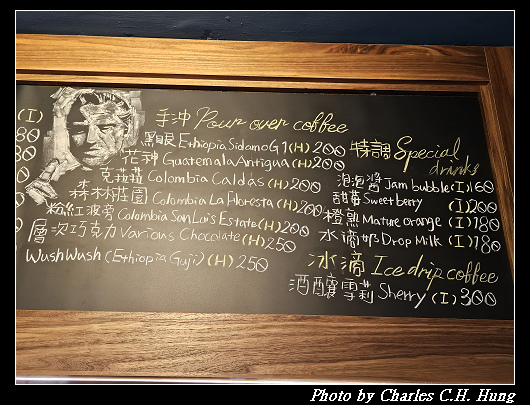 (I)
80
80
手沖 Pour over coffee
黑眼 Ethiopia Sidamo G1 (H) 200
花神 Guatemala Antigua (H) 200
Colombia Caldás (H) 200
森林莊園 Colombia La Floresta (H) 200
粉紅波旁 Colombia San Luis Estate (H) 200
層次巧克力 Various Chocolate (H) 250
Wush Wush (Ethiopia Guji) (H) 250
特調 Special drinks
泡泡醬 Jam bubble (I) 160
甜莓 Sweet berry (I) 200
橙熟 Mature orange (I) 180
水滴奶 Drop Milk (I) 180
冰滴 Ice drip coffee
酒釀雪莉 Sherry (I) 300
Photo by Charles C.H. Hung